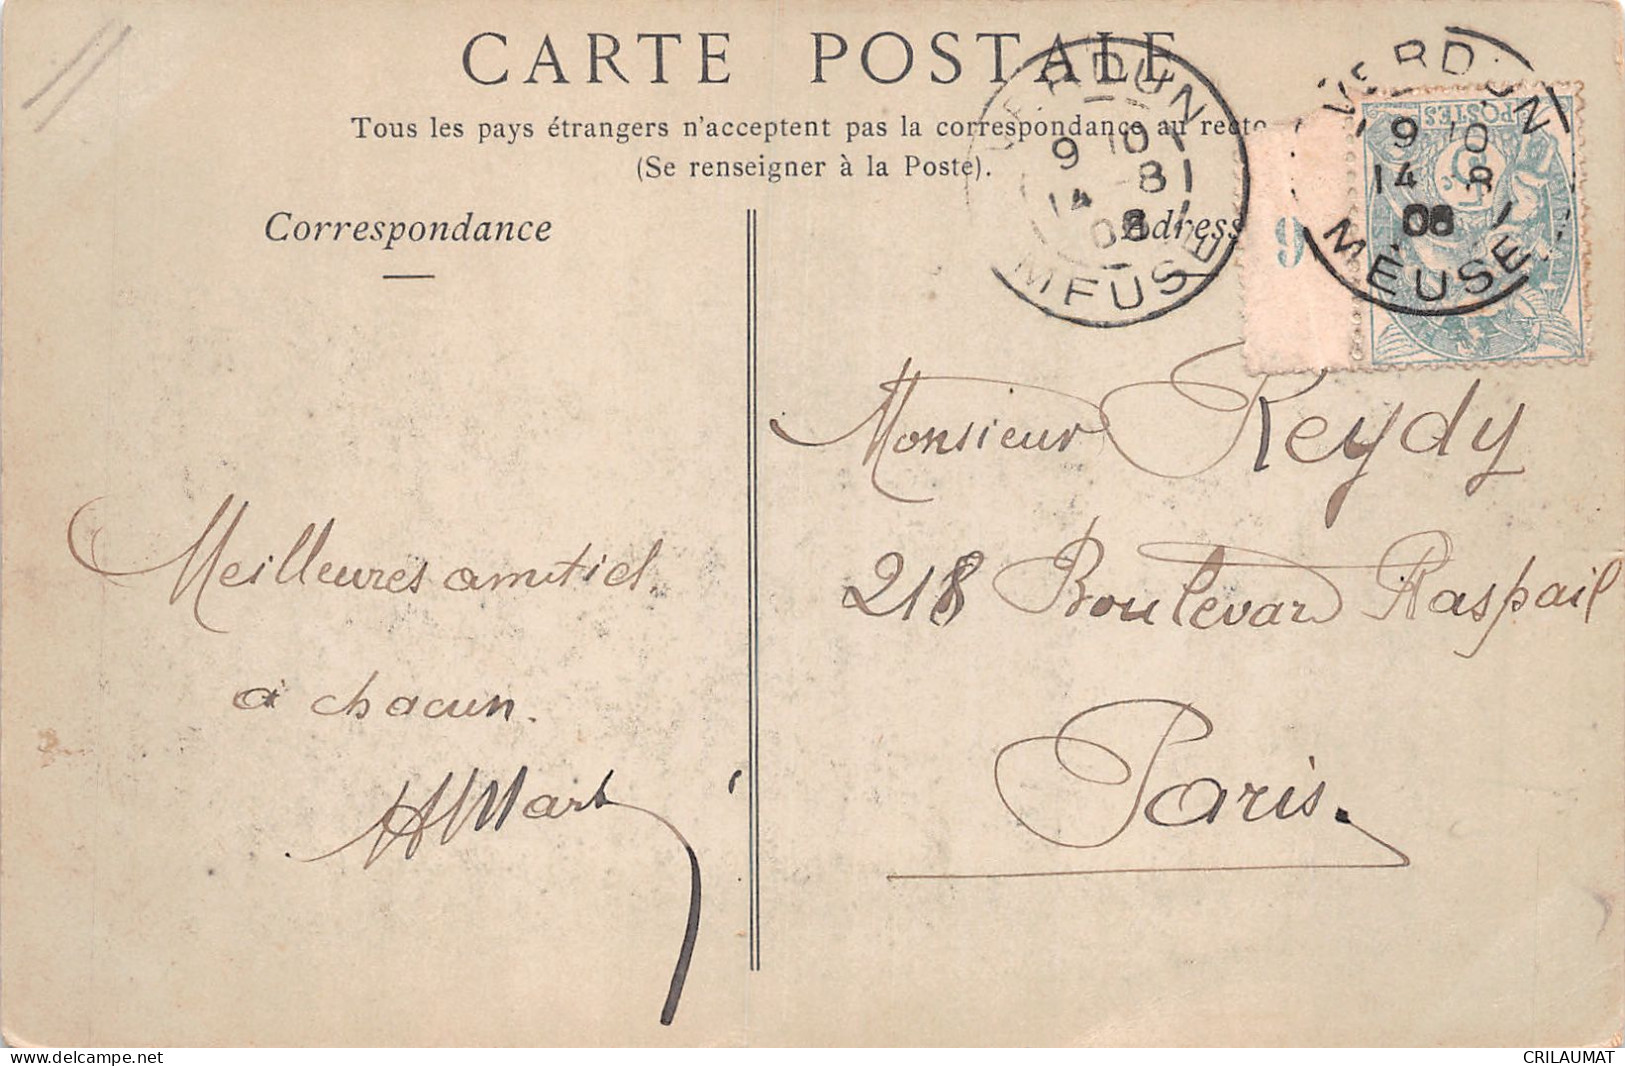 CARTE POSTALE
Tous les pays étrangers n'acceptent pas la correspondance au recto
(Se renseigner à la Poste).
Correspondance
Adress
VERDUN
9 10
14 8
08
MEUSE
VERDUN
9 10
14 8
08
MEUSE
POSTES
5
9
Monsieur Reydy
218 Boulevard Raspail
Paris.
Meilleures amitiés
à chacun.
delcampe.net
CRILAUMAT